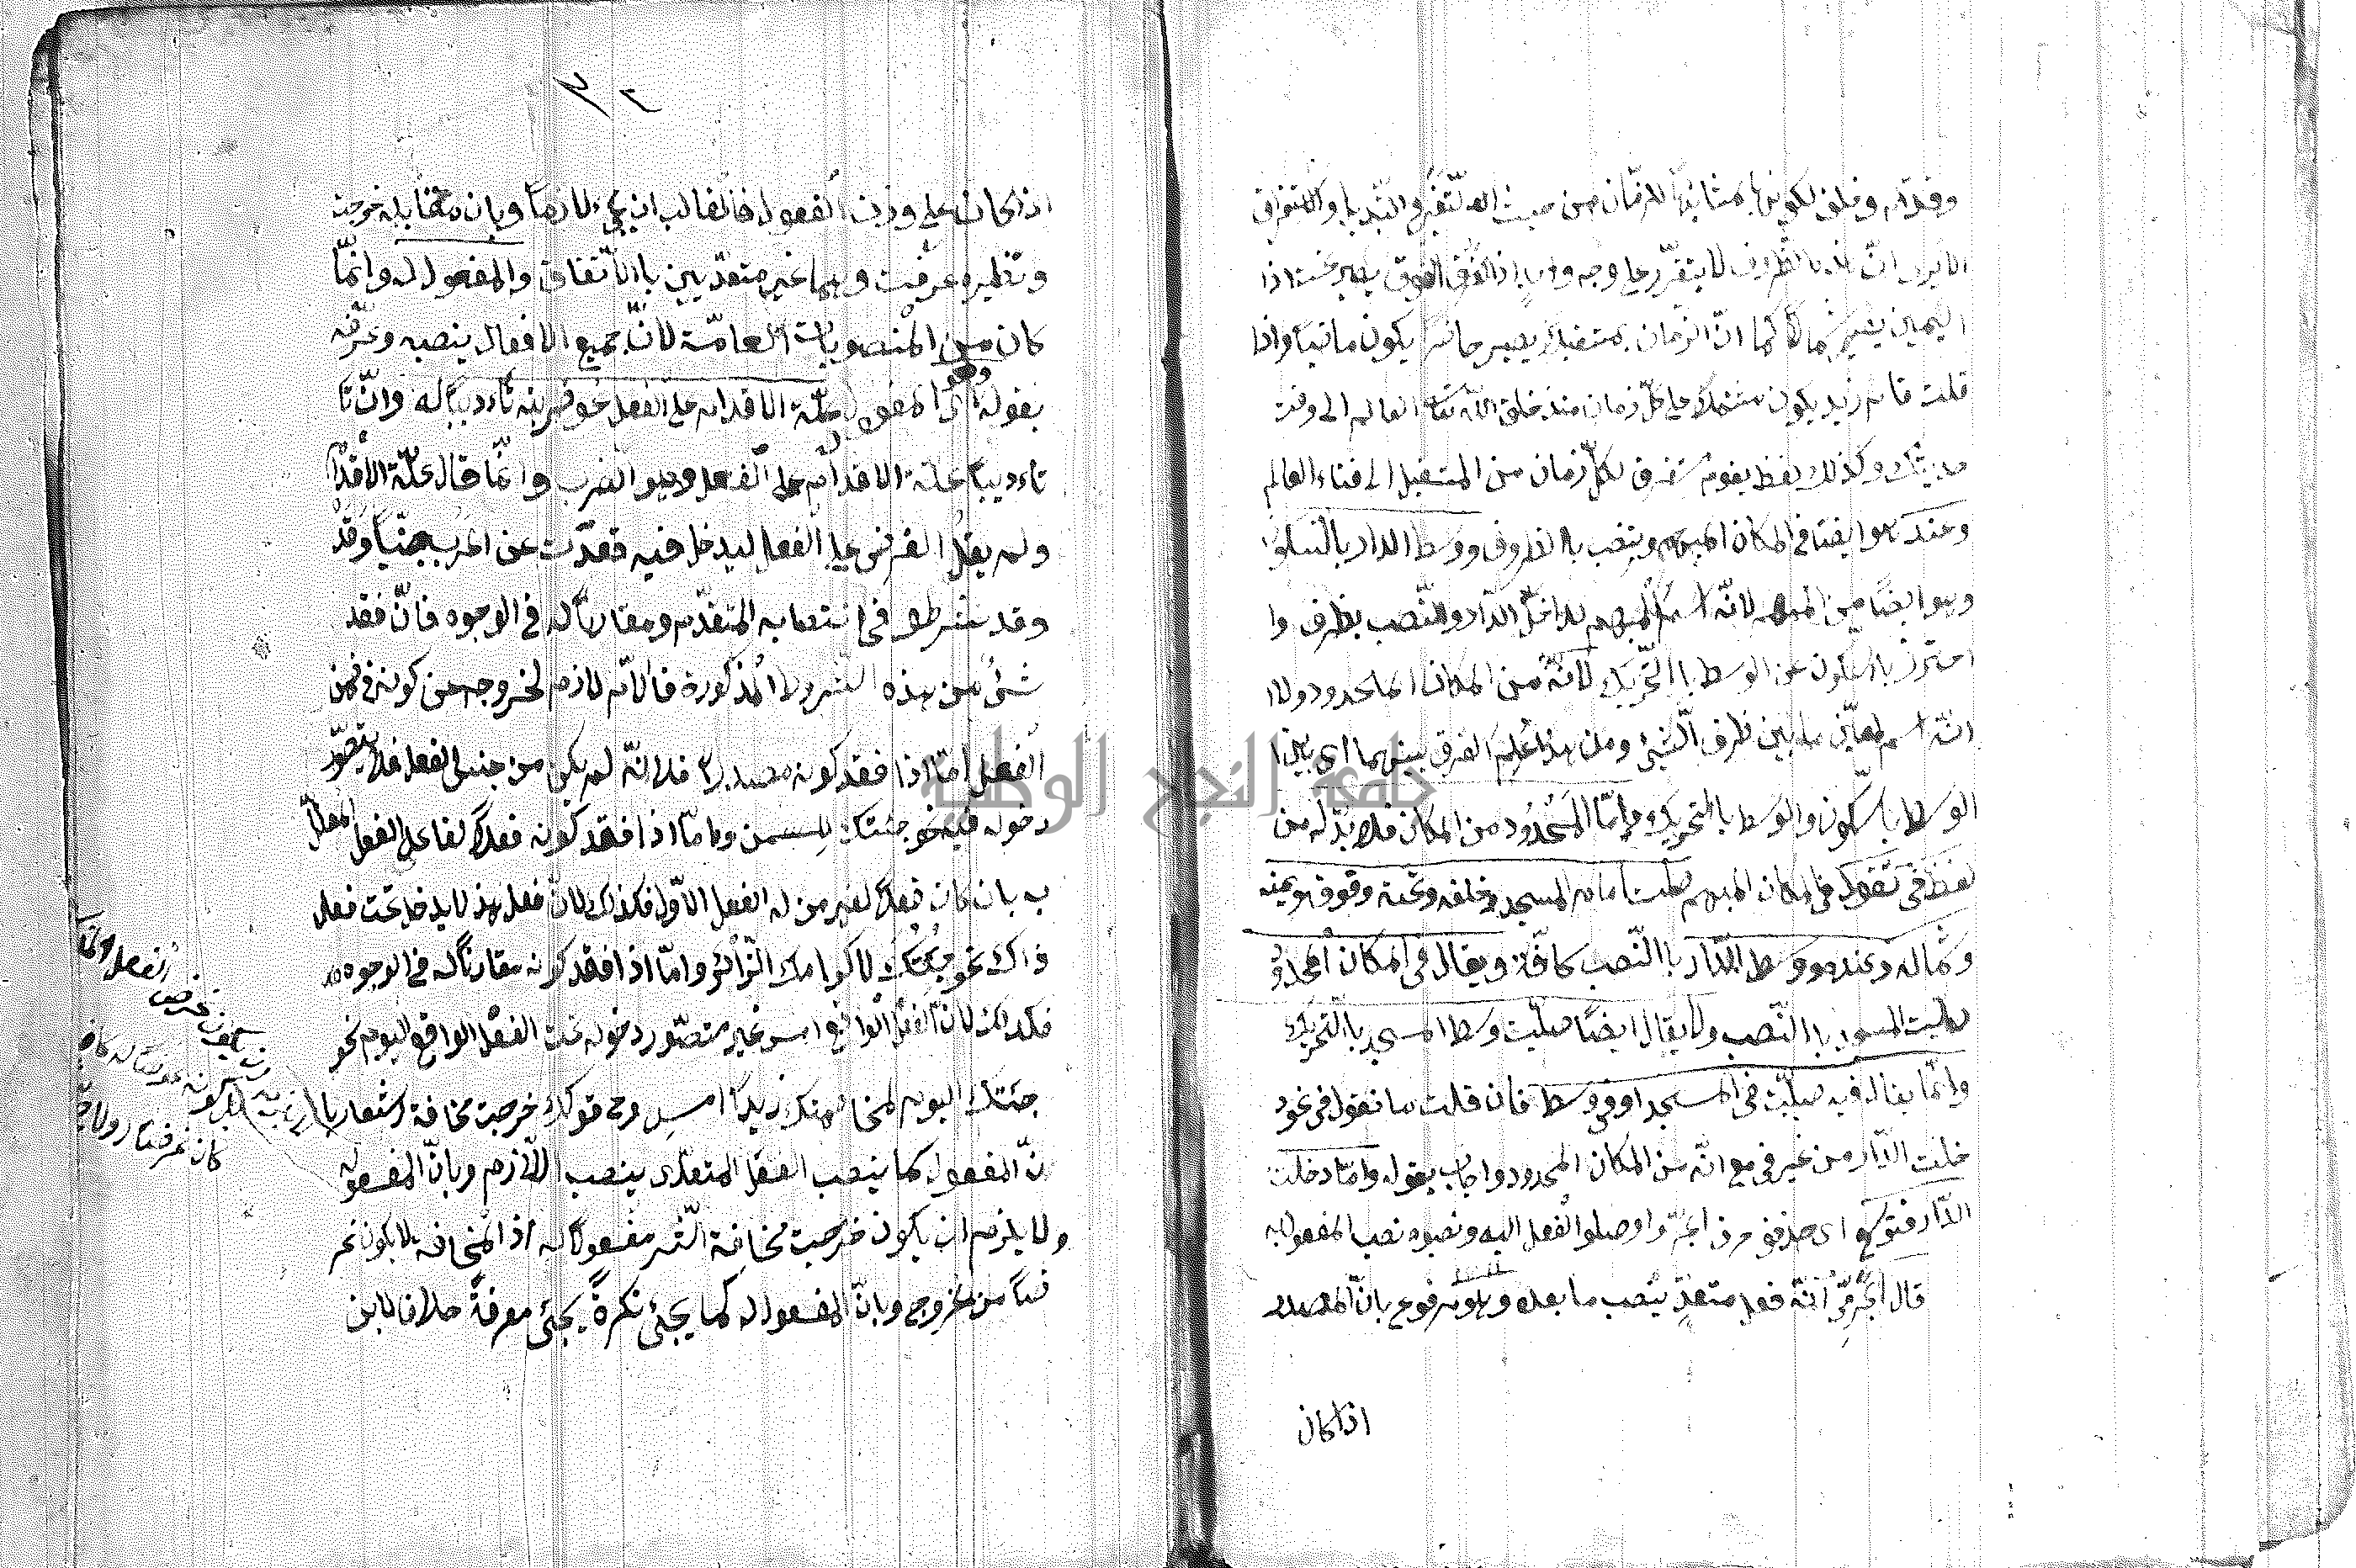 وقدام وخلف لكونها بمثابة للزمان من حيث التغير والتبديل والاستغراق
الا يرى ان هذه الظروف لا يتقرر على وجه واحد اذ الفوق يصير تحتا اذا
اليمين يصير شمالا كما ان الزمان مستقبلا يصير حاضرا يكون ماضيا واذا
قلت قام زيد يكون مشتملا على كل زمان منذ خلق الله تعا العالم الى وقت
حديثك وكذلك لفظ يقوم مستغرق لكل زمان من المستقبل الى فناء العالم
وعند هو ايضا في المكان المبهم وينتصب بالظروف ووسط الدار بالسكون
وهو ايضا من المبهم لانه اسم المبهم لداخل الدار وانتصب بظرف وا
احترز بالسكون عن الوسط باالتحريك لانه من المكان المحدود ولا
انه اسم لمعين ما بين طرف الشيئ ومن هذا علم الفرق بينهما اى بين ا
الوسط باسكون والوسط بالتحريك واما المحدود من المكان فلا بد له من
لفظ في تقول في المكان المبهم صليت امام المسجد وخلفه وتحته وفوقه ويمينه
وشماله وعنده ووسط الدار باالنصب كافة ويقال في المكان المحدو
صليت المسجد باالنصب ولا يقال ايضا صليت وسط المسجد باالتحريك
وانما يقال فيه صليت في المسجد او في وسط فان قلت ما تقول في نحو د
خلت الدار من غير في مع انه من المكان المحدود واجاب بقوله واما دخلت
الدار فتوسع اى حذفو حرف الجر واوصلوا الفعل اليه ونصبوه نصب المفعول به
قال الجرمي انه فعل متعد نصب ما بعده وهو مرفوع بان المصدر
اذا كان
٣٢
اذا كان على وزن الفعول فالغالب ان يجيء لازما وبان مقابله خرجت
ونظيره عرفت وهما غير متعديين باالاتفاق والمفعول له وانما
كان من المنصوبات العامة لان جميع الافعال ينصبه وعرفه
بقوله وهو اى المفعول علة الاقدام على الفعل نحو ضربته تاءديبا له وان تا
تاءديبا علة الاقدام على الفعل وهو الضرب وانما قال علة الاقدام
ولم يقل الغرض على الفعل ليدخل فيه قعدت عن الحرب جبنا وقد
وقد شرط في انتصابه المتقدم ومقارنا له في الوجوه فان فقد
شيئ من هذه الشروط المذكورة فاللام لازم لخروجه من كونه في ضمن
الفعل اما اذا فقد كونه مصدرا فلانه لم يكن من جنس الفعل فلا يتصور
دخوله فيه نحو جئتك للسمن واما اذا فقد كونه فعلا لفاعل الفعل المعلل
به بان كان فعلا لغير من له الفعل الاول فكذلك لان فعل هذا لا يدخل تحت فعل
ذاك نحو جئتك لاكرامك الزائر واما اذا فقد كونه مقارنا له في الوجوه
فكذلك لان الفعل الواقع امس غير متصور دخوله تحت الفعل الواقع اليوم نحو
جئتك اليوم لمخاصمتك زيدا امس وفي قولك خرجت مخافة اشعار با
ن المفعول كما ينصب الفعل المتعدى ينصب اللازم وبان المفعول
ولا يلزم ان يكون خرجت مخافة الشر مفعولا له اذ المخافة لا يكون غر
ضا من الخروج وبان المفعول له كما يجئ نكرة يجئ معرفة خلافا لابن